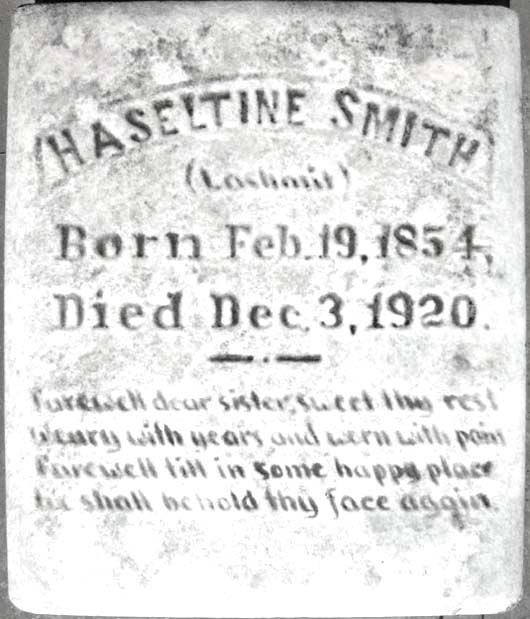 HASELTINE SMITH
Born Feb. 19, 1854,
Died Dec. 3, 1920.
Farewell dear sister, sweet thy rest
Weary with years and worn with pain
Farewell till in some happy place
We shall behold thy face again.